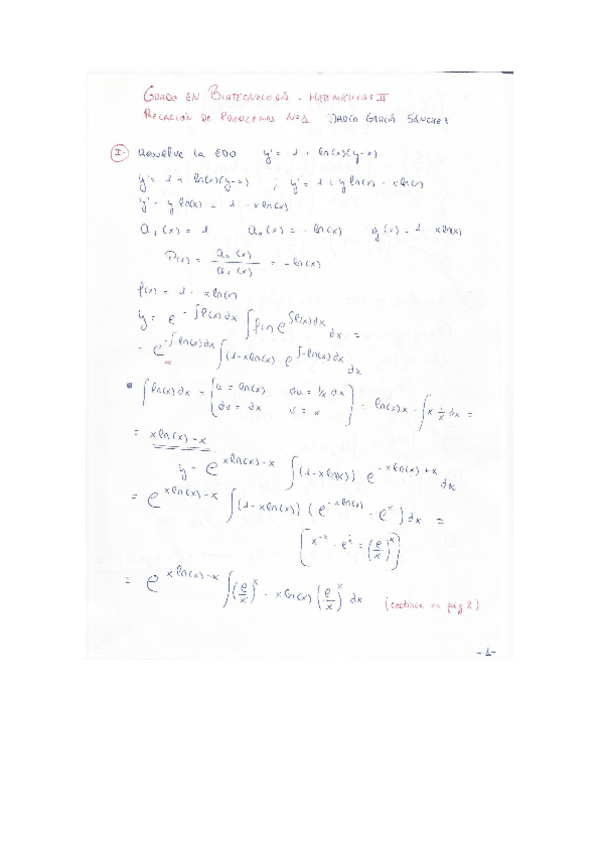 GRADO EN BIOTECNOLOGÍA - MATEMÁTICAS II
RELACIÓN DE PROBLEMAS Nº1 DARÍO GARCÍA SÁNCHEZ
I- Resuelve la EDO y' = 1 + ln(x)(y-x)
y' = 1 + ln(x)(y-x) ; y' = 1 + y ln(x) - x ln(x)
y' - y ln(x) = 1 - x ln(x)
a₁(x) = 1 a₀(x) = - ln(x) g(x) = 1 - x ln(x)
P(x) = a₀(x) / a₁(x) = - ln(x)
f(x) = 1 - x ln(x)
y = e^(-∫P(x)dx) ∫ f(x) e^(∫P(x)dx) dx =
= e^(-∫-ln(x)dx) ∫ (1-x ln(x)) · e^(∫-ln(x)dx) dx
• ∫ ln(x) dx = [u = ln(x) du = 1/x dx
dv = dx v = x] = ln(x)x - ∫ x 1/x dx =
= x ln(x) - x
y = e^(x ln(x)-x) ∫ (1-x ln(x)) e^(-x ln(x)+x) dx
= e^(x ln(x)-x) ∫ (1-x ln(x)) (e^(-x ln(x)) · e^x) dx =
[x^(-x) · e^x = (e/x)^x]
= e^(x ln(x)-x) ∫ (e/x)^x - x ln(x) (e/x)^x dx (continúa en pág 2)
-1-